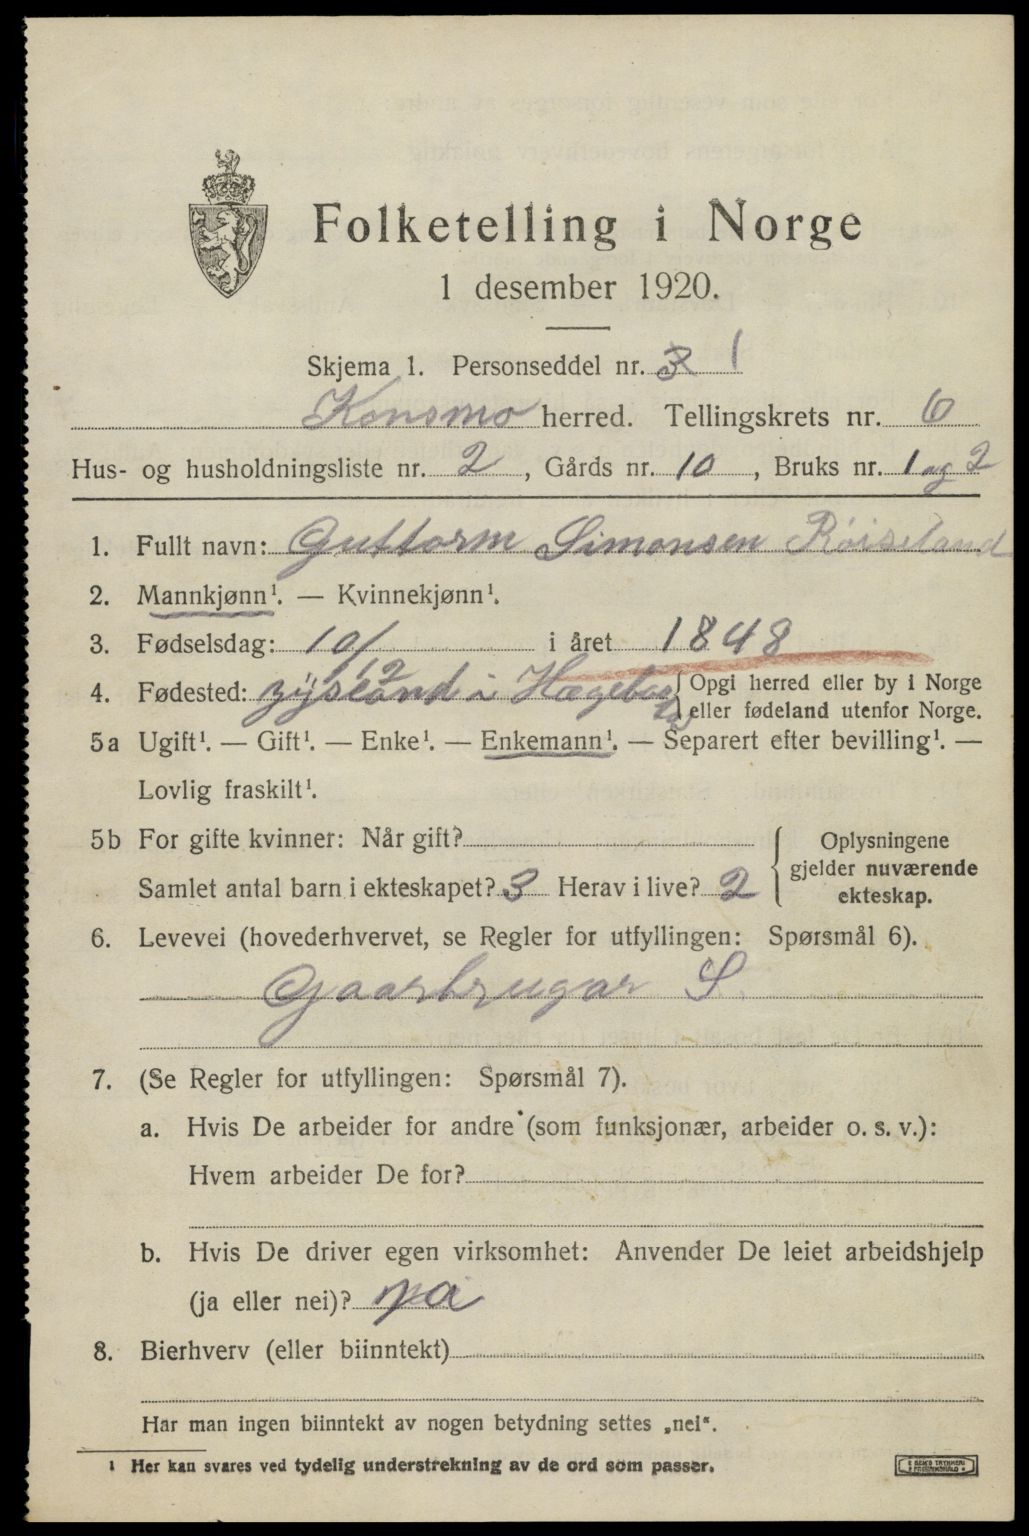 Folketelling i Norge
1 desember 1920.
Skjema 1. Personseddel nr. 3 1
Konsmo herred. Tellingskrets nr. 6
Hus- og husholdningsliste nr. 2, Gårds nr. 10, Bruks nr. 1 og 2
1. Fullt navn: Guttorm Simonsen Röiseland
2. Mannkjønn¹. — Kvinnekjønn¹.
3. Fødselsdag: 10/12 i året 1848
4. Fødested: i Hægebos tad { Opgi herred eller by i Norge
eller fødeland utenfor Norge.
5a Ugift¹. — Gift¹. — Enke¹. — Enkemann¹. — Separert efter bevilling¹. —
Lovlig fraskilt¹.
5b For gifte kvinner: Når gift?
Samlet antal barn i ekteskapet? 3 Herav i live? 2
Oplysningene
gjelder nuværende
ekteskap.
6. Levevei (hovederhvervet, se Regler for utfyllingen: Spørsmål 6).
Gaarbrugar S.
7. (Se Regler for utfyllingen: Spørsmål 7).
a. Hvis De arbeider for andre (som funksjonær, arbeider o. s. v.):
Hvem arbeider De for?
b. Hvis De driver egen virksomhet: Anvender De leiet arbeidshjelp
(ja eller nei)?
8. Bierhverv (eller biinntekt)
Har man ingen biinntekt av nogen betydning settes „nei“.
¹ Her kan svares ved tydelig understrekning av de ord som passer.